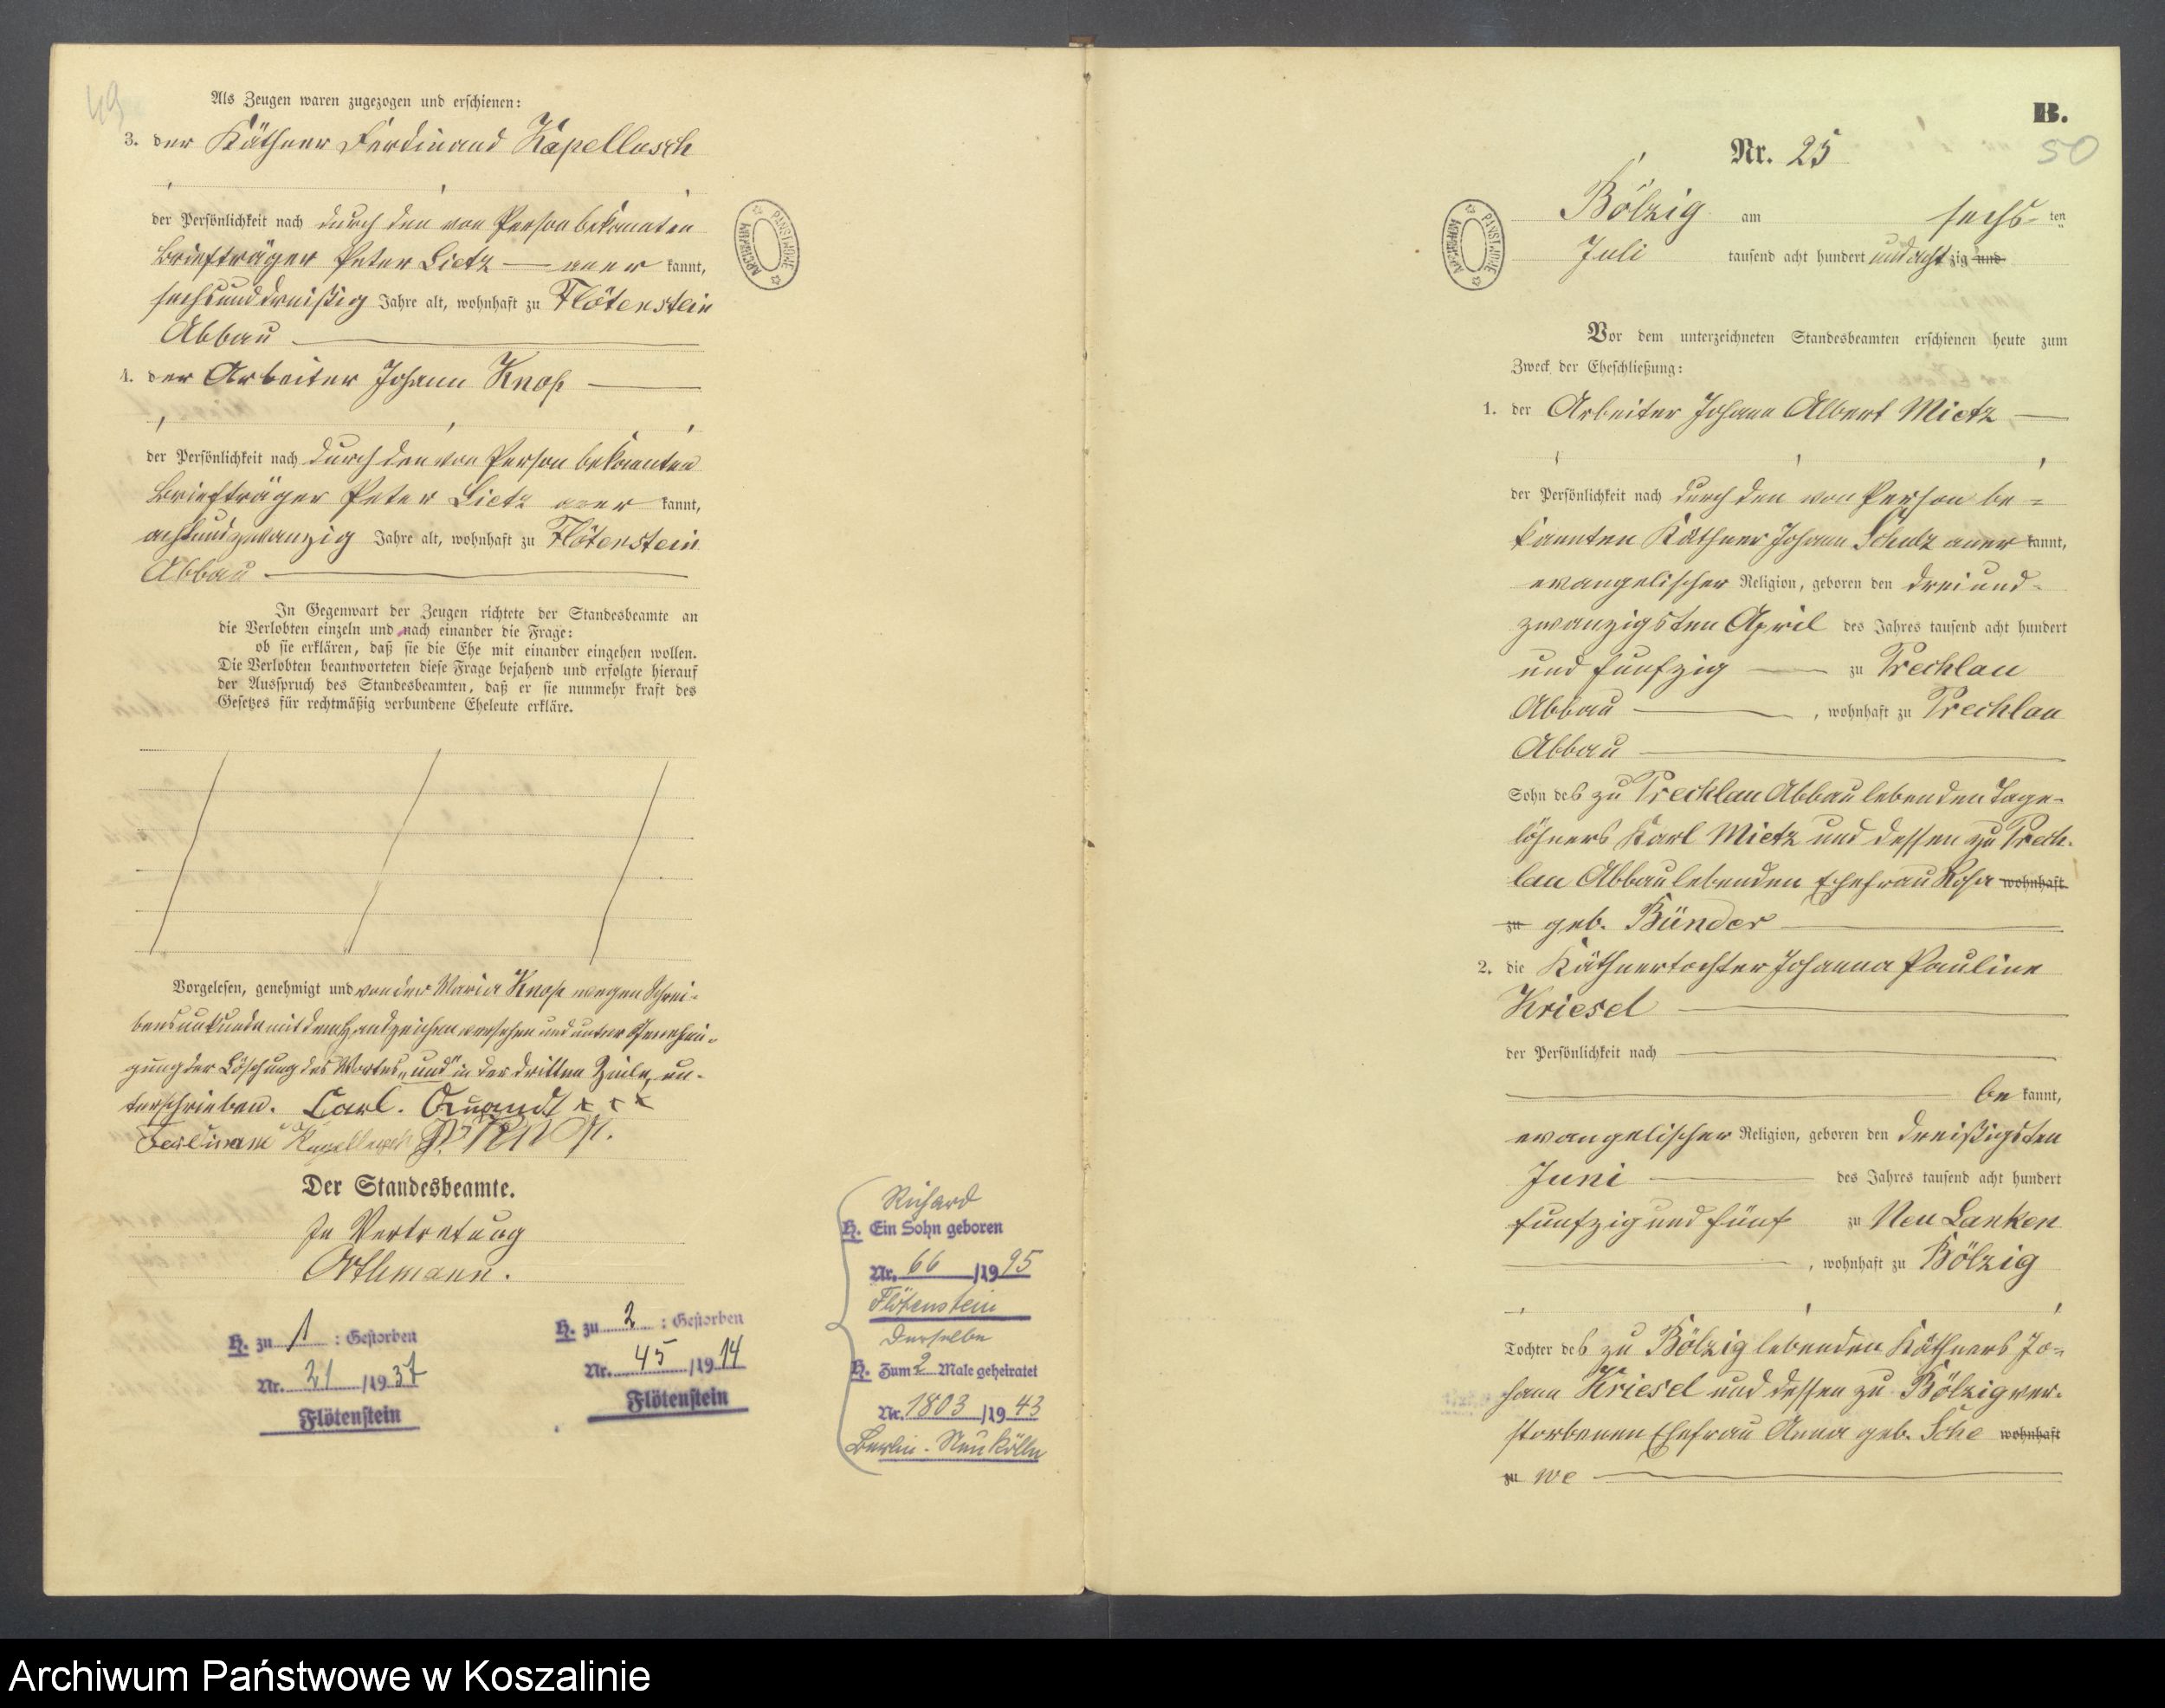 49
Als Zeugen waren zugezogen und erschienen:
3. der Käthner Ferdinand Kapellusch
der Persönlichkeit nach durch den von Person bekannten
Briefträger Peter Lietz — aner kannt,
sechsunddreißig Jahre alt, wohnhaft zu Flötenstein
Abbau
4. der Arbeiter Johann Knop
der Persönlichkeit nach durch den von Person bekannten
Briefträger Peter Lietz aner kannt,
achtundzwanzig Jahre alt, wohnhaft zu Flötenstein
Abbau
In Gegenwart der Zeugen richtete der Standesbeamte an
die Verlobten einzeln und nach einander die Frage:
ob sie erklären, daß sie die Ehe mit einander eingehen wollen.
Die Verlobten beantworteten diese Frage bejahend und erfolgte hierauf
der Ausspruch des Standesbeamten, daß er sie nunmehr kraft des
Gesetzes für rechtmäßig verbundene Eheleute erkläre.
Vorgelesen, genehmigt und von der Maria Knop wegen Schrei-
bensunkunde mit dem Handzeichen versehen und unter Genehmi-
gung der Löschung des Wortes „und" in der dritten Zeile, un-
terschrieben. Carl. Quandt x x x
Ferdinand Kapellusch J. Knop.
Der Standesbeamte.
In Vertretung
Orthmann.
H. zu 1 : Gestorben
Nr. 21 /19 37
Flötenstein
H. zu 2 : Gestorben
Nr. 45 /19 14
Flötenstein
Richard
H. Ein Sohn geboren
Nr. 66 /19 95
Flötenstein
Derselbe
H. Zum 2 Male geheiratet
Nr. 1803 /19 43
Berlin-Neukölln
ARCHIWUM PAŃSTWOWE
B.
50
Nr. 25
ARCHIWUM PAŃSTWOWE
Bölzig am sechs ten
Juli tausend acht hundert und acht zig und
Vor dem unterzeichneten Standesbeamten erschienen heute zum
Zweck der Eheschließung:
1. der Arbeiter Johann Albert Mietz
der Persönlichkeit nach durch den von Person be=
kannten Käthner Johann Schulz aner kannt,
evangelischer Religion, geboren den dreiund-
zwanzigsten April des Jahres tausend acht hundert
und funfzig — zu Prechlau
Abbau —, wohnhaft zu Prechlau
Abbau
Sohn des zu Prechlau Abbau lebenden Tage-
löhners Karl Mietz und dessen zu Prech-
lau Abbau lebenden Ehefrau Rosa wohnhaft
zu geb. Bünder
2. die Käthnertochter Johanna Pauline
Kriesel
der Persönlichkeit nach
be kannt,
evangelischer Religion, geboren den dreißigsten
Juni des Jahres tausend acht hundert
funfzig und fünf zu Neu Lanken
, wohnhaft zu Bölzig
Tochter des zu Bölzig lebenden Käthners Jo=
hann Kriesel und dessen zu Bölzig ver-
storbenen Ehefrau Anna geb. Sche wohnhaft
zu we
Archiwum Państwowe w Koszalinie